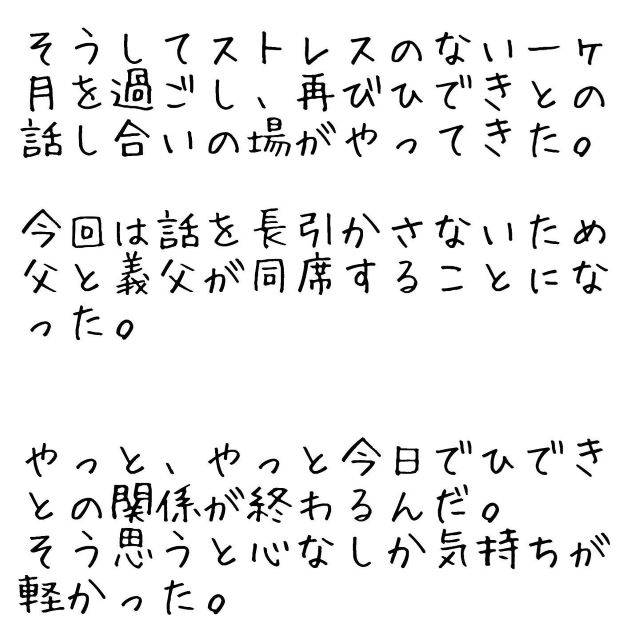 そうしてストレスのない一ヶ
月を過ごし、再びひできとの
話し合いの場がやってきた。
今回は話を長引かさないため
父と義父が同席することにな
った。
やっと、やっと今日でひでき
との関係が終わるんだ。
そう思うと心なしか気持ちが
軽かった。